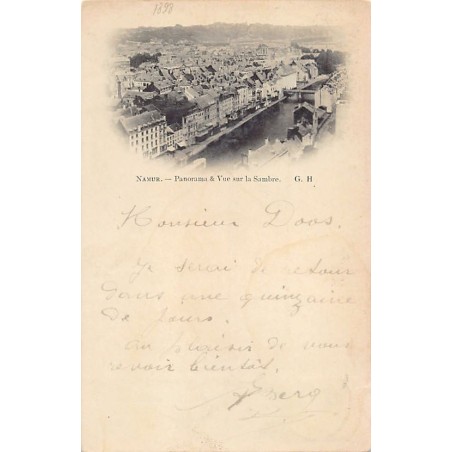 1898
NAMUR. — Panorama & Vue sur la Sambre. G. H
Monsieur Doos.
Je serai de retour
dans une quinzaine
de jours.
Au plaisir de vous
revoir bientôt.